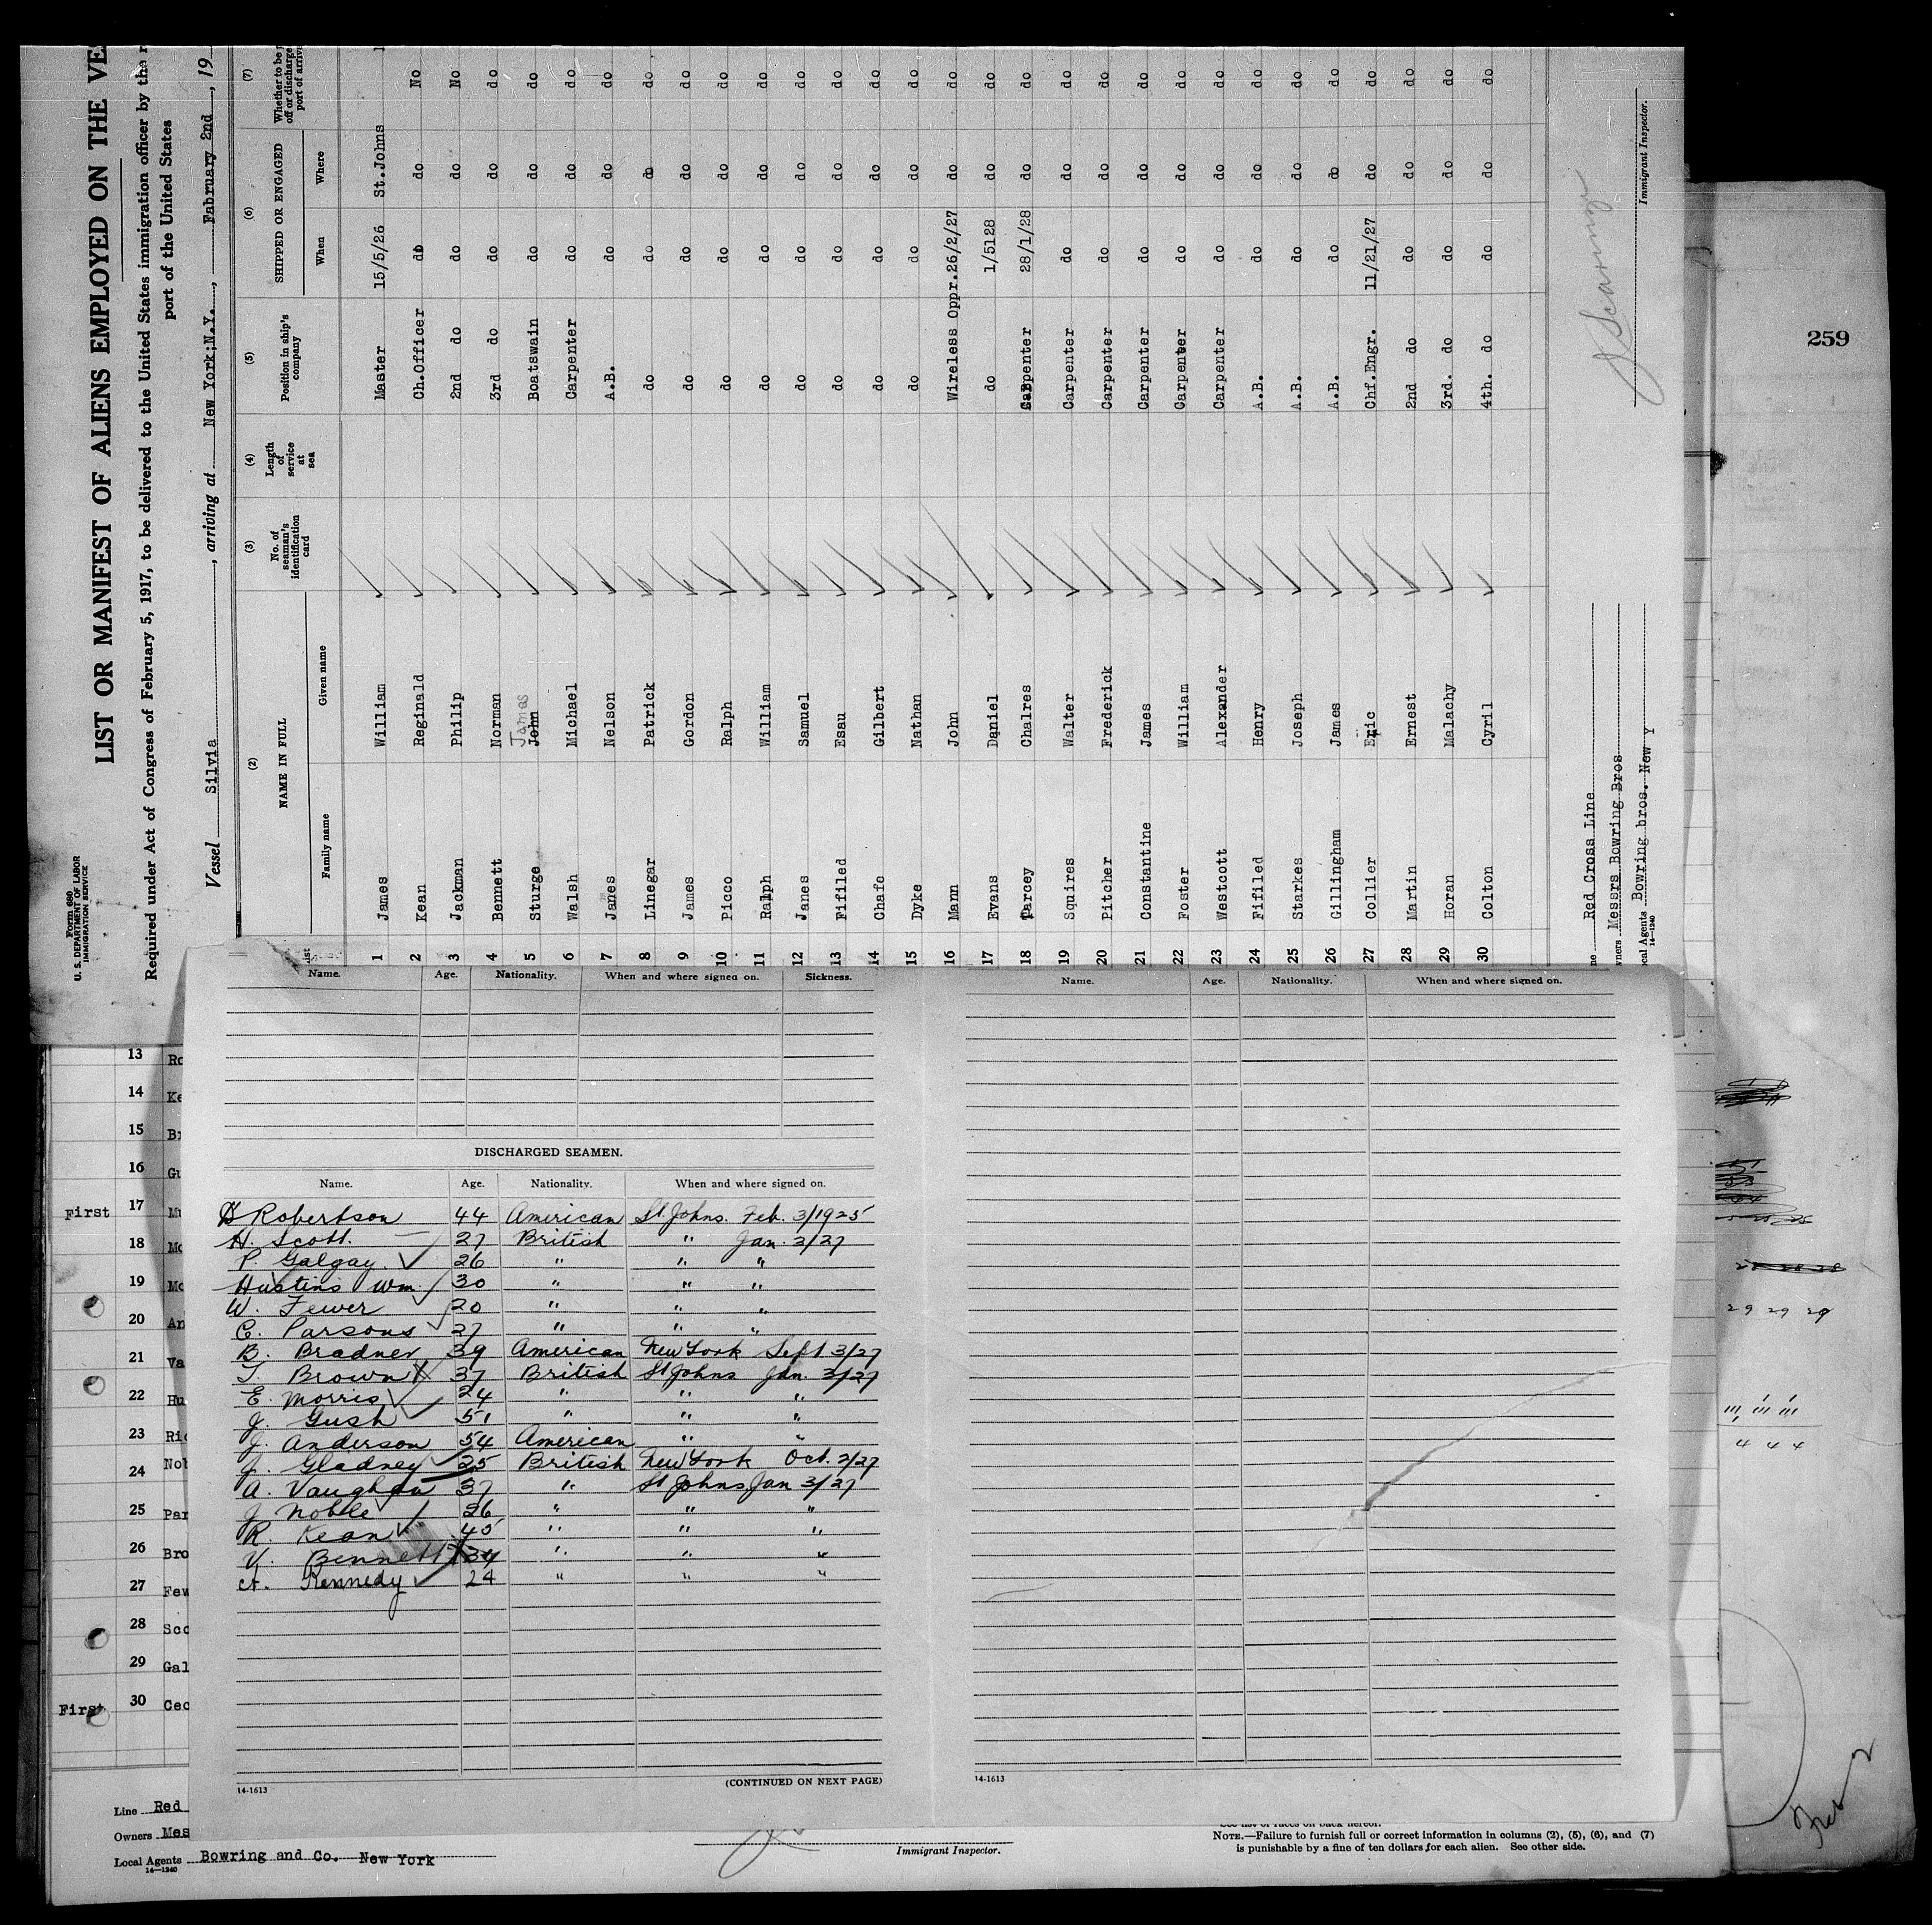 Form 689
U. S. DEPARTMENT OF LABOR
IMMIGRATION SERVICE
LIST OR MANIFEST OF ALIENS EMPLOYED ON THE VES
Required under Act of Congress of February 5, 1917, to be delivered to the United States immigration officer by the r
port of the United States
Vessel Silvia, arriving at New York;N.Y., Fabruary 2nd, 19
(2) (3) (4) (5) (6) (7)
NAME IN FULL
Family name Given name
No. of seaman's identification card
Length of service at sea
Position in ship's company
SHIPPED OR ENGAGED
When Where
Whether to be p
off or discharge
port of arriva
1 James William Master 15/5/26 St.Johns
2 Kean Reginald Ch.Officer do do No
3 Jackman Philip 2nd do do do No
4 Bennett Norman 3rd do do do do
5 Sturge John James Boatswain do do do
6 Walsh Michael Carpenter do do do
7 Janes Nelson A.B. do do do
8 Linegar Patrick do do do do
9 James Gordon do do do do
10 Picco Ralph do do do do
11 Ralph William do do do do
12 Janes Samuel do do do do
13 Fifiled Esau do do do do
14 Chafe Gilbert do do do do
15 Dyke Nathan do do do do
16 Mann John Wireless Oppr. 26/2/27 do do
17 Evans Daniel do 1/5128 do do
18 Darcey Chalres Carpenter 28/1/28 do do
19 Squires Walter Carpenter do do do
20 Pitcher Frederick Carpenter do do do
21 Constantine James Carpenter do do do
22 Foster William Carpenter do do do
23 Westcott Alexander Carpenter do do do
24 Fifiled Henry A.B. do do do
25 Starkes Joseph A.B. do do do
26 Gillingham James A.B. do do do
27 Collier Eric Chf.Engr. 11/21/27 do do
28 Martin Ernest 2nd do do do do
29 Horan Malachy 3rd. do do do do
30 Colton Cyril 4th. do do do do
ne Red Cross Line
wners Messrs Bowring Bros
cal Agents Bowring bros. New Y
14-1240
Immigrant Inspector.
259
Name. Age. Nationality. When and where signed on. Sickness.
Name. Age. Nationality. When and where signed on.
DISCHARGED SEAMEN.
Name. Age. Nationality. When and where signed on.
Robertson 44 American St. Johns. Feb. 3/1925
H. Scott. 27 British " Jan. 3/27
P. Galgay. 26 " " "
Hustins Wm. 30 " " "
W. Fewer 20 " " "
C. Parsons 27 " " "
B. Bradner 39 American New York Sept 3/27
T. Brown 37 British St Johns Jan. 3/27
E. Morris 24 " " "
J. Gush 51 " " "
J. Anderson 54 American " "
J. Gladney 25 British New York Oct. 2/27
A. Vaughan 37 " St Johns Jan 3/27
J. Noble 26 " " "
R. Kean 45 " " "
V. Bennett 34 " " "
A. Kennedy 24 " " "
14-1613
(CONTINUED ON NEXT PAGE)
14-1613
13 Ro
14 Ke
15 Br
16 Gu
First 17 Mu
18 Mc
19 Mc
20 An
21 Va
22 Hu
23 Ric
24 Nob
25 Par
26 Bro
27 Few
28 Sco
29 Gal
First 30 Cec
29 29 29
4 4 4
Line Red
Owners Mes
Local Agents Bowring and Co. New York
14-1240
Immigrant Inspector.
NOTE.—Failure to furnish full or correct information in columns (2), (5), (6), and (7)
is punishable by a fine of ten dollars for each alien. See other side.